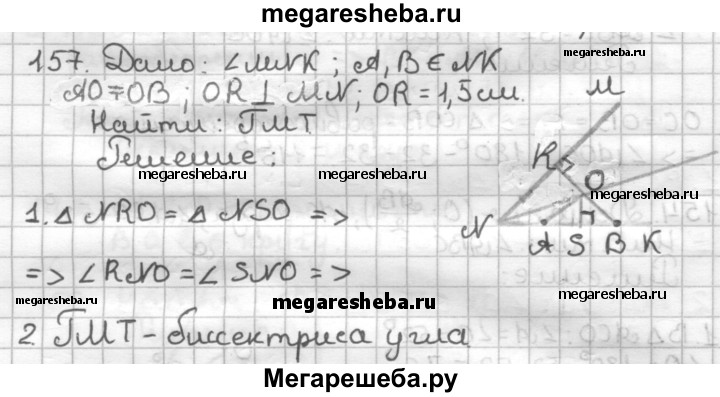 megaresheba.ru
157. Дано: ∠MNK; A, B ∈ NK
AO = OB; OR ⊥ MN; OR = 1,5 см.
Найти: ГМТ
Решение:
megaresheba.ru
megaresheba.ru
megaresheba.ru
M
R
O
megaresheba.ru
1. △ NRO = △ NSO =>
N
A S B K
=> ∠RNO = ∠SNO =>
megaresheba.ru
megaresheba.ru
megaresheba.ru
2. ГМТ - биссектриса угла
Мегарешеба.ру